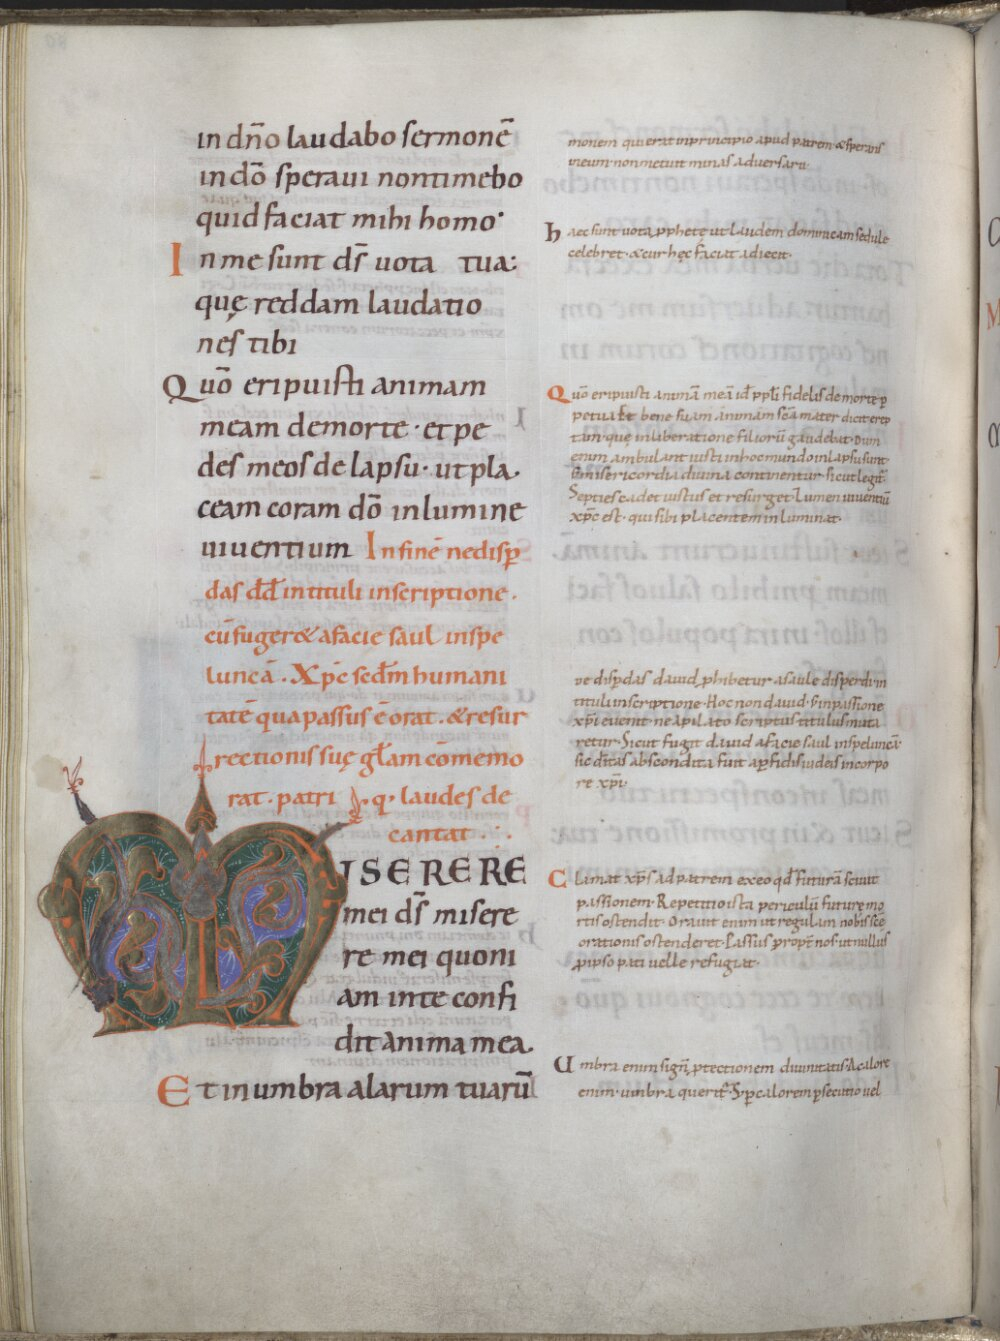 in dn̄o laudabo sermonē
in dō speraui non timebo
quid faciat mihi homo·
In me sunt ds̄ uota tua:
quę reddam laudatio
nes tibi
Quō eripuisti animam
meam de morte· et pe
des meos de lapsu· ut pla
ceam coram dō in lumine
uiuentium In finē ne disp̄
das dd̄ in tituli inscriptione·
cū fuger& a facie saul in spe
luncā· Xp̄c secd̄m humani
tatē qua passus ē orat· & resur
rectionis suę gl̄am cōmemo
rat· patri q· laudes de
cantat
MISERERE
mei ds̄ misere
re mei quoni
am in te confi
dit anima mea.
Et in umbra alarum tuarū
monem qui erat in principio apud patrem & sperans
in eum non metuit minas aduersarii·
Haec sunt uota pphetę ut laudem dominicam sedule
celebret· & cur hęc faciat adiecit·
Quō eripuisti animā meā id ē ppl̄i fidelis de morte p
petua& bene suam animam sc̄a mater dicit erep
tam quę in liberatione filiorū gaudebat· Dum
enim ambulant iusti in hoc mundo in lapsu sunt
s; misericordia diuina continentur· sicut legit̄
Septies cadet iustus et resurget· Lumen uiuentiū
xp̄c est· qui sibi placentem inluminat·
Ne disp̄das dauid phibetur a saule disperdi in
tituli inscriptione· Hoc non dauid· s; in passione
xp̄i euenit· ne a pilato scriptus titulus muta
retur· Sicut fugit dauid a facie saul in speluncā
sic diuitas abscondita fuit a p̄fidis iudeis in corpo
re xp̄i·
Clamat xp̄s ad patrem ex eo qd̄ futurā sciuit
passionem· Repetitio ista periculū futurę mo
rtis ostendit· Orauit enim ut regulam nobis scē
orationis ostenderet· Passus propt̄ nos· ut nullus
p ipso pati uelle refugiat·
Umbra enim sign̄ ptectionem diuinitatis A calore
enim umbra querit̄· S; p calorem psecutio uel